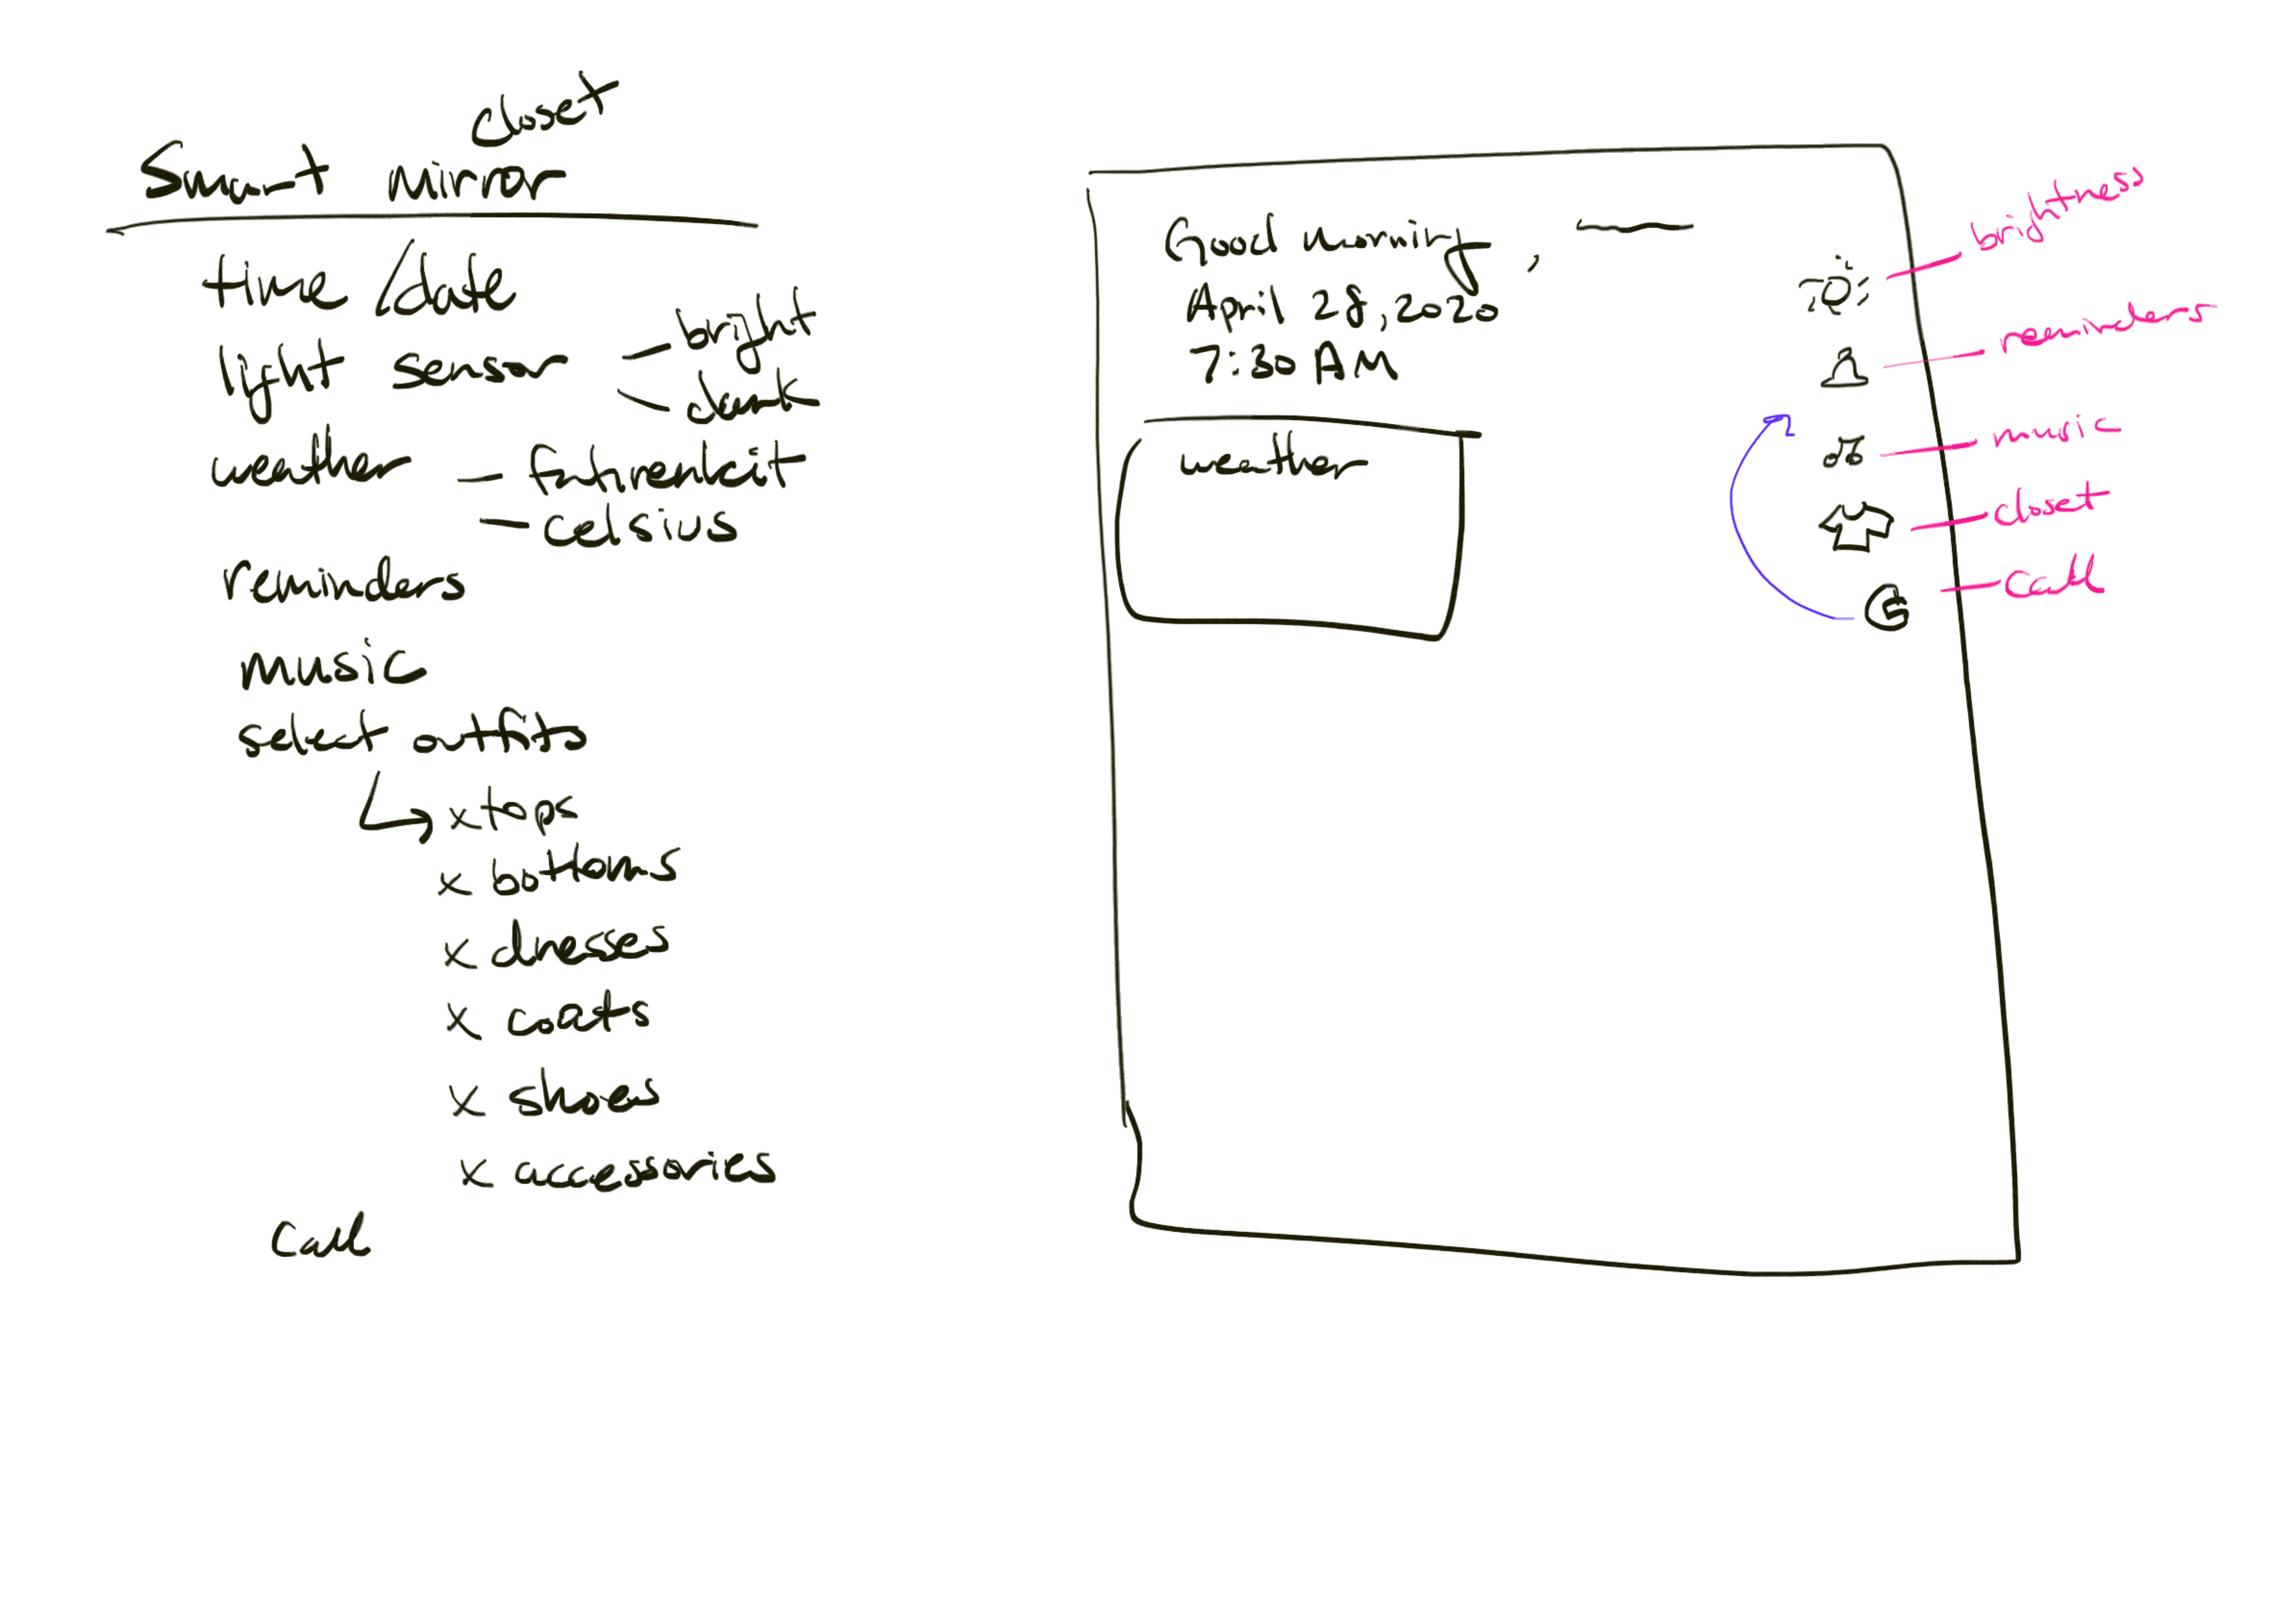 closet
Smart Mirror
time/date
light sensor - bright
- dark
weather - fahrenheit
- celsius
reminders
music
select outfits
x tops
x bottoms
x dresses
x coats
x shoes
x accessories
Call
Good Morning,
April 28, 2020
7:30 AM
weather
brightness
reminders
music
closet
Call